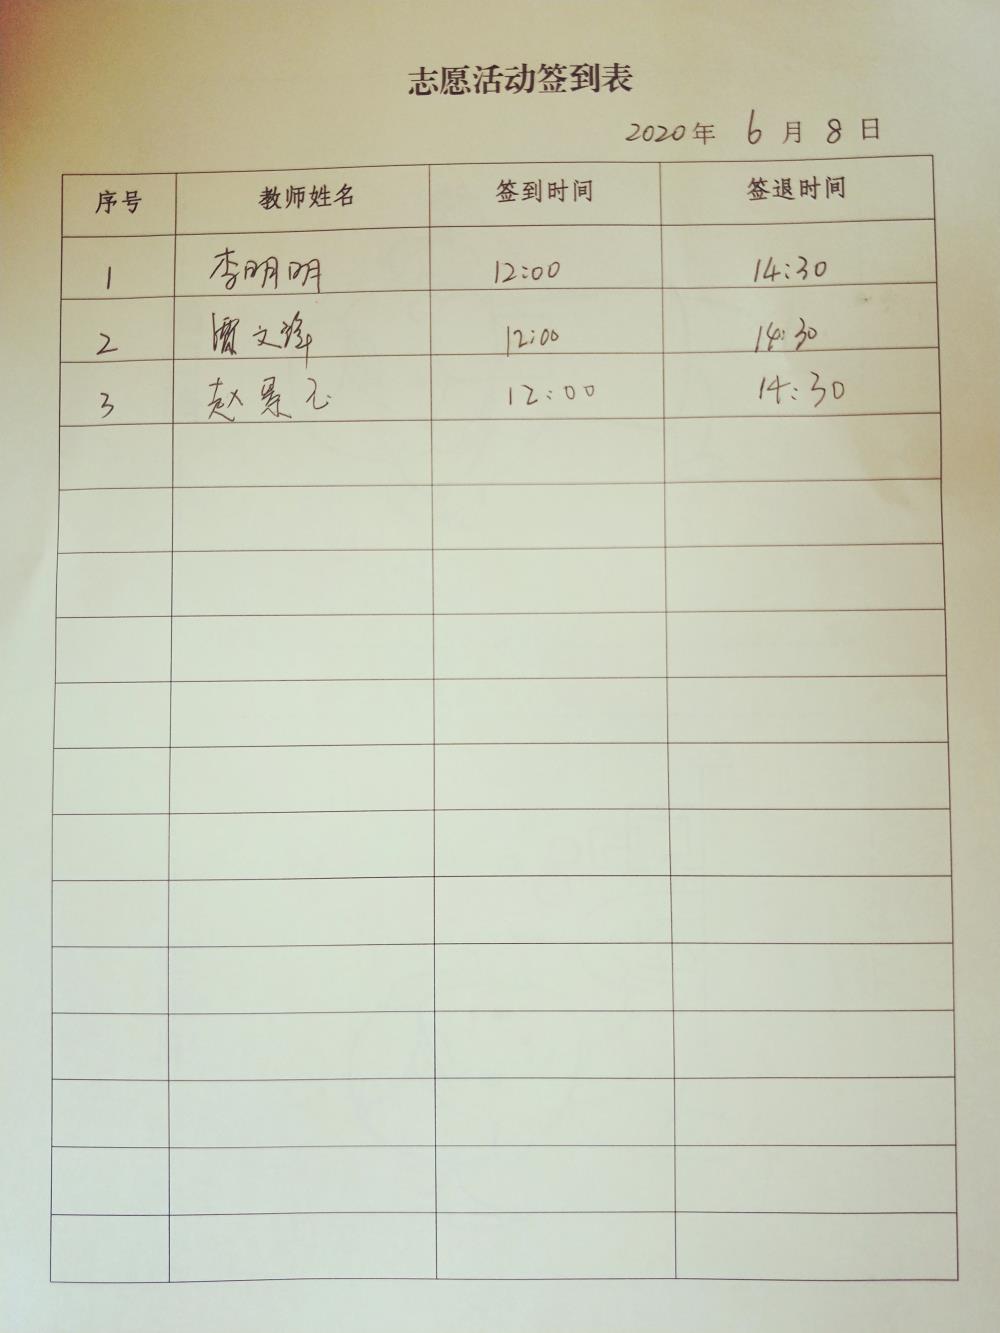 志愿活动签到表
2020年 6 月 8 日
序号 教师姓名 签到时间 签退时间
1 李明明 12:00 14:30
2 文 12:00 14:30
3 赵景 12:00 14:30